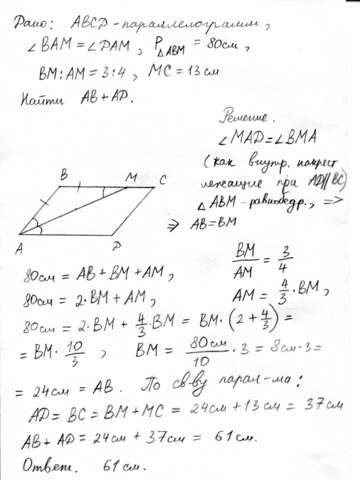 Дано: ABCD - параллелограмм,
∠BAM = ∠DAM, P△ABM = 80см,
BM : AM = 3 : 4, MC = 13см
Найти AB + AD.
Решение.
∠MAD = ∠BMA
(как внутр. накрест
лежащие при AD||BC)
△ABM - равнобедр., =>
=> AB = BM
B M C
A D
80см = AB + BM + AM,
BM/AM = 3/4
80см = 2·BM + AM,
AM = 4/3·BM,
80см = 2·BM + 4/3·BM = BM·(2 + 4/3) =
= BM·10/3, BM = 80см/10·3 = 8см·3 =
= 24см = AB. По св-ву парал-ма:
AD = BC = BM + MC = 24см + 13см = 37см
AB + AD = 24см + 37см = 61см.
Ответ. 61см.